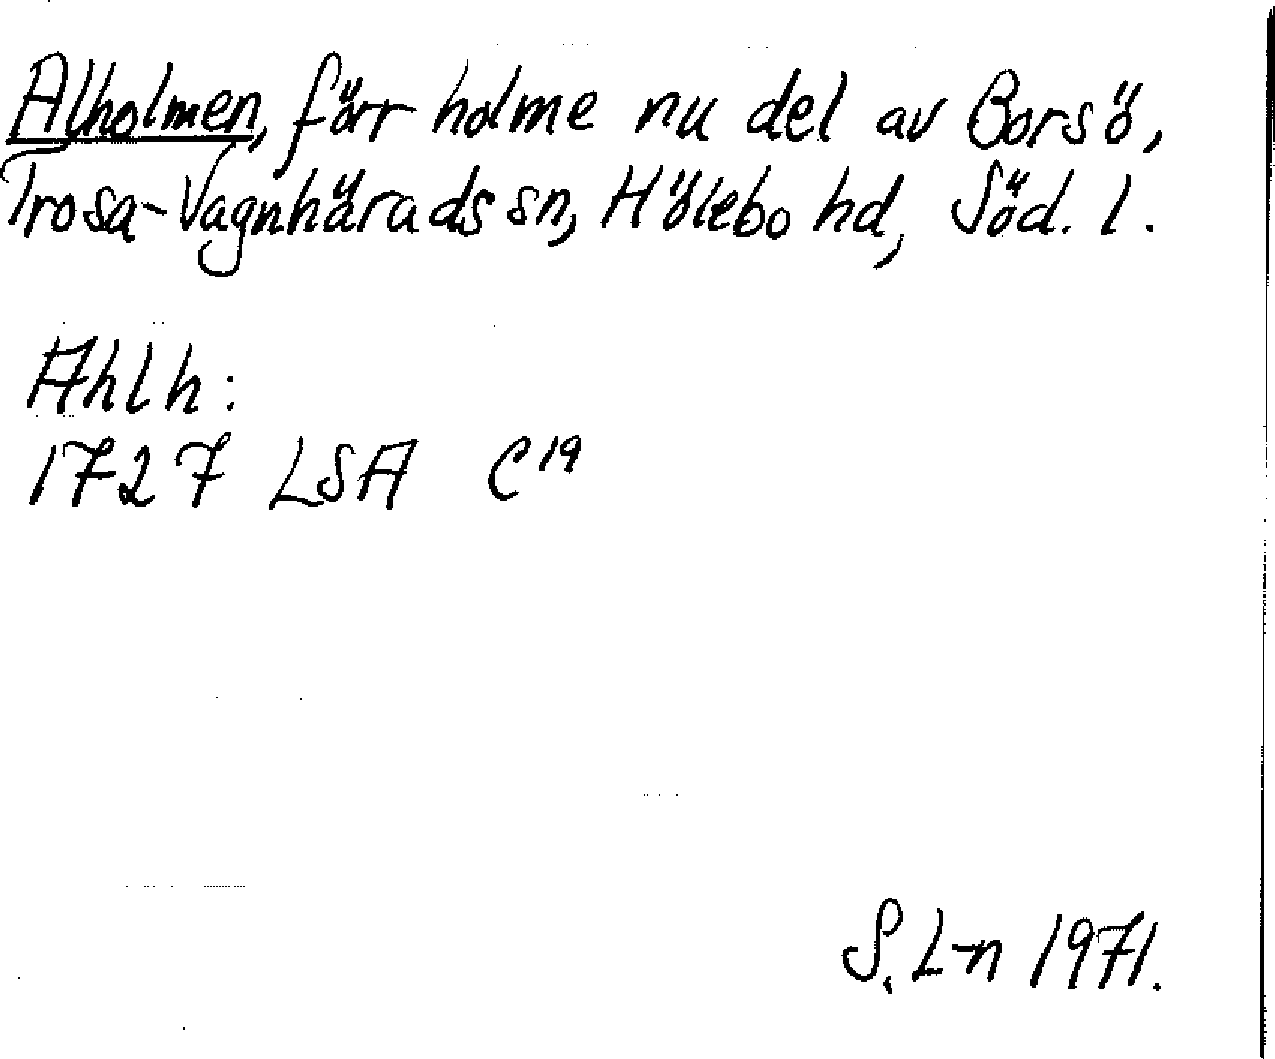 Alholmen, förr holme nu del av Borsö,
Trosa-Vagnhärads sn, Hölebo hd, Söd. l.
Ahlh:
1727 LSA C19
S. L-n 1971.